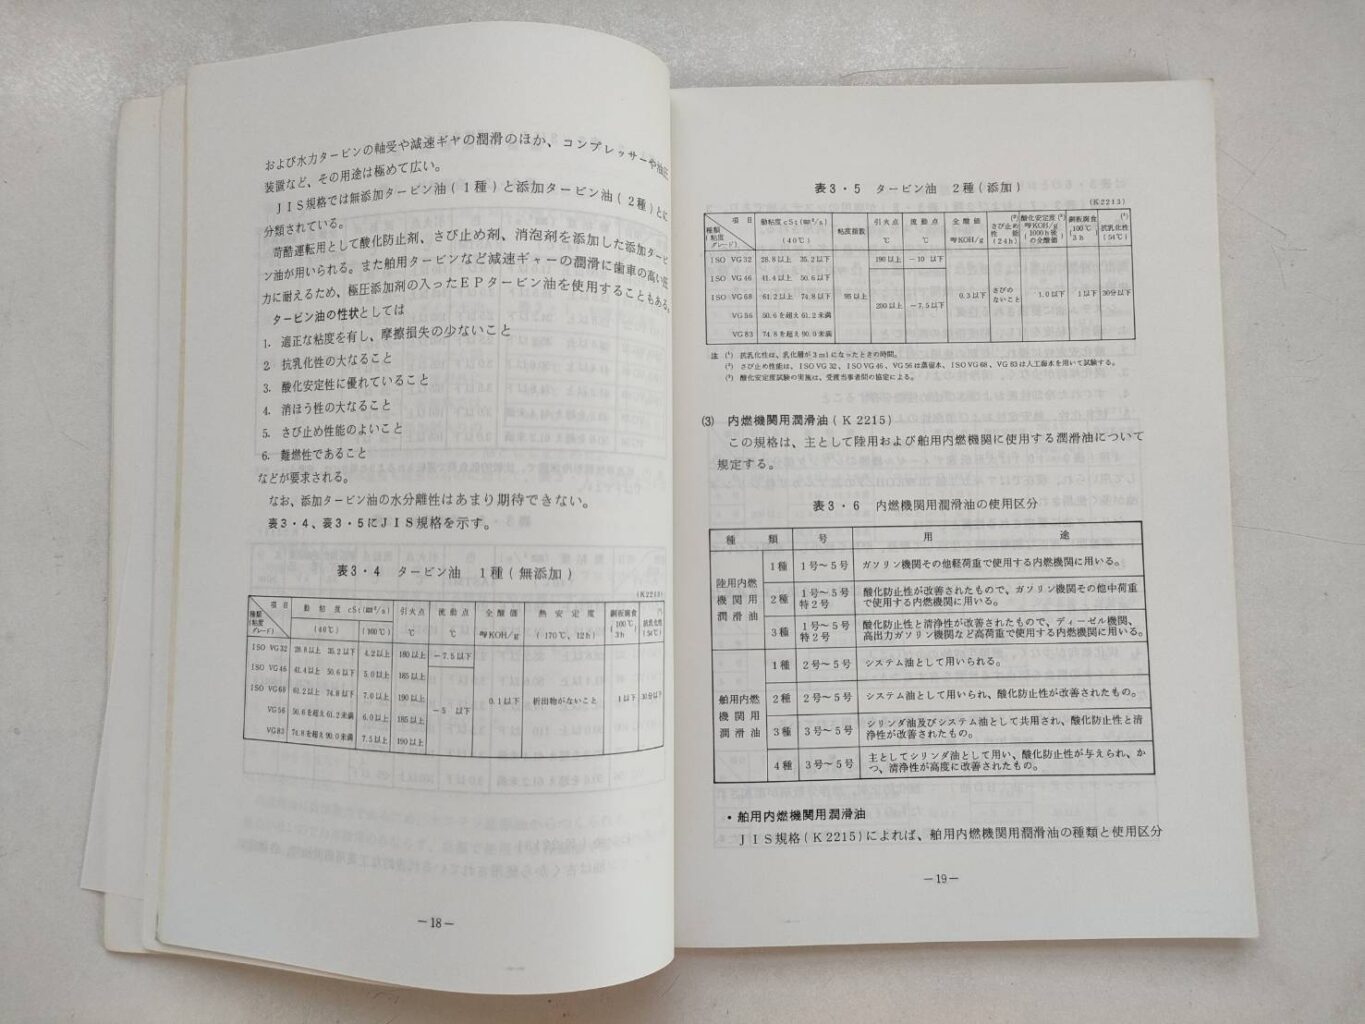 および水力タービンの軸受や減速ギヤの潤滑のほか、コンプレッサーや油圧
装置など、その用途は極めて広い。
JIS規格では無添加タービン油(1種)と添加タービン油(2種)とに
分類されている。
苛酷運転用として酸化防止剤、さび止め剤、消泡剤を添加した添加タービ
ン油が用いられる。また舶用タービンなど減速ギャーの潤滑に歯車の高い圧
力に耐えるため、極圧添加剤の入ったEPタービン油を使用することもある。
タービン油の性状としては
1. 適正な粘度を有し、摩擦損失の少ないこと
2. 抗乳化性の大なること
3. 酸化安定性に優れていること
4. 消ほう性の大なること
5. さび止め性能のよいこと
6. 難燃性であること
などが要求される。
なお、添加タービン油の水分離性はあまり期待できない。
表3・4、表3・5にJIS規格を示す。
表3・4 タービン油 1種(無添加)
(K2213)
項目 動粘度 cSt(mm²/s) 引火点 流動点 全酸価 熱安定度 銅板腐食 抗乳化性
種類(粘度グレード) (40℃) (100℃) ℃ ℃ mgKOH/g (170℃, 12h) (100℃ 3h) (54℃)
ISO VG32 28.8以上 35.2以下 4.2以上 180以上 −7.5以下
ISO VG46 41.4以上 50.6以下 5.0以上 185以上
ISO VG68 61.2以上 74.8以下 7.0以上 190以上 −5 以下 0.1以下 析出物がないこと 1以下 30分以下
VG56 50.6を超え61.2未満 6.0以上 185以上
VG83 74.8を超え90.0未満 7.5以上 190以上
−18−
表3・5 タービン油 2種(添加)
(K2213)
項目 動粘度 cSt(mm²/s) 粘度指数 引火点 流動点 全酸価 (²)さび止め性能(24h) 酸化安定度(³) 銅板腐食 (¹)抗乳化性
種類(粘度グレード) (40℃) ℃ ℃ mgKOH/g mgKOH/g(1000h後の全酸価) (100℃ 3h) (54℃)
ISO VG32 28.8以上 35.2以下 190以上 −10 以下
ISO VG46 41.4以上 50.6以下
ISO VG68 61.2以上 74.8以下 95以上 200以上 −7.5以下 0.3以下 さびのないこと 1.0以下 1以下 30分以下
VG56 50.6を超え61.2未満
VG83 74.8を超え90.0未満
注 (¹) 抗乳化性は、乳化層が3mlになったときの時間。
(²) さび止め性能は、ISO VG32、ISO VG46、VG56は蒸留水、ISO VG68、VG83は人工海水を用いて試験する。
(³) 酸化安定度試験の実施は、受渡当事者間の協定による。
(3) 内燃機関用潤滑油(K2215)
この規格は、主として陸用および舶用内燃機関に使用する潤滑油について
規定する。
表3・6 内燃機関用潤滑油の使用区分
種類 号 用途
陸用内燃機関用潤滑油
1種 1号〜5号 ガソリン機関その他軽荷重で使用する内燃機関に用いる。
2種 1号〜5号 特2号 酸化防止性が改善されたもので、ガソリン機関その他中荷重
で使用する内燃機関に用いる。
3種 1号〜5号 特2号 酸化防止性と清浄性が改善されたもので、ディーゼル機関、
高出力ガソリン機関など高荷重で使用する内燃機関に用いる。
舶用内燃機関用潤滑油
1種 2号〜5号 システム油として用いられる。
2種 2号〜5号 システム油として用いられ、酸化防止性が改善されたもの。
3種 3号〜5号 シリンダ油及びシステム油として共用され、酸化防止性と清
浄性が改善されたもの。
4種 3号〜5号 主としてシリンダ油として用い、酸化防止性が与えられ、か
つ、清浄性が高度に改善されたもの。
・舶用内燃機関用潤滑油
JIS規格(K2215)によれば、舶用内燃機関用潤滑油の種類と使用区分
−19−